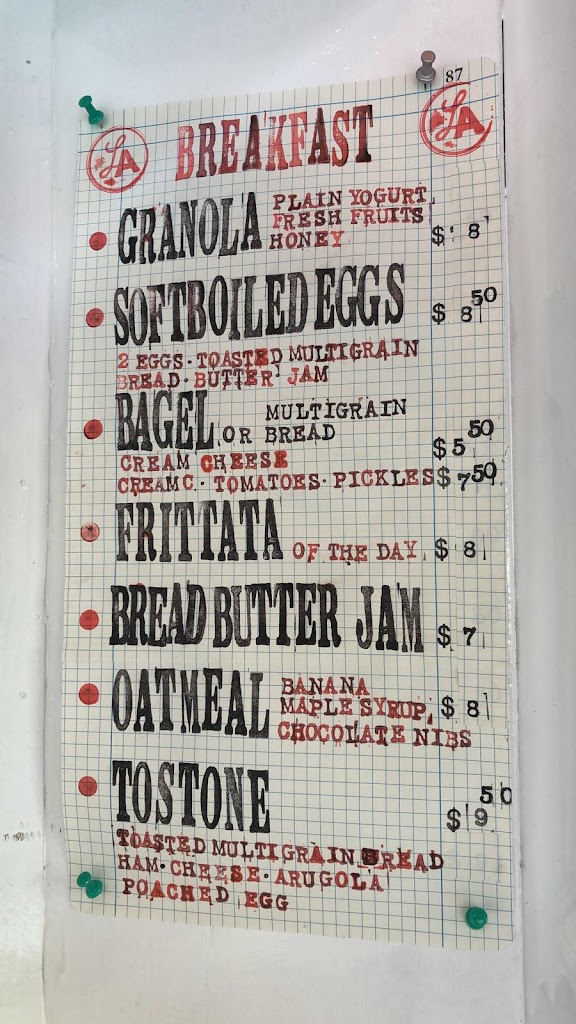 87
LA BREAKFAST LA
GRANOLA PLAIN YOGURT,
FRESH FRUITS
HONEY $ 8
SOFTBOILED EGGS $ 8 50
2 EGGS · TOASTED MULTIGRAIN
BREAD · BUTTER JAM
BAGEL OR MULTIGRAIN
BREAD
CREAM CHEESE $ 5 50
CREAM C. · TOMATOES · PICKLES $ 7 50
FRITTATA OF THE DAY $ 8
BREAD BUTTER JAM $ 7
OATMEAL BANANA
MAPLE SYRUP, $ 8
CHOCOLATE NIBS
TOSTONE $ 9 50
TOASTED MULTIGRAIN BREAD
HAM · CHEESE · ARUGOLA
POACHED EGG